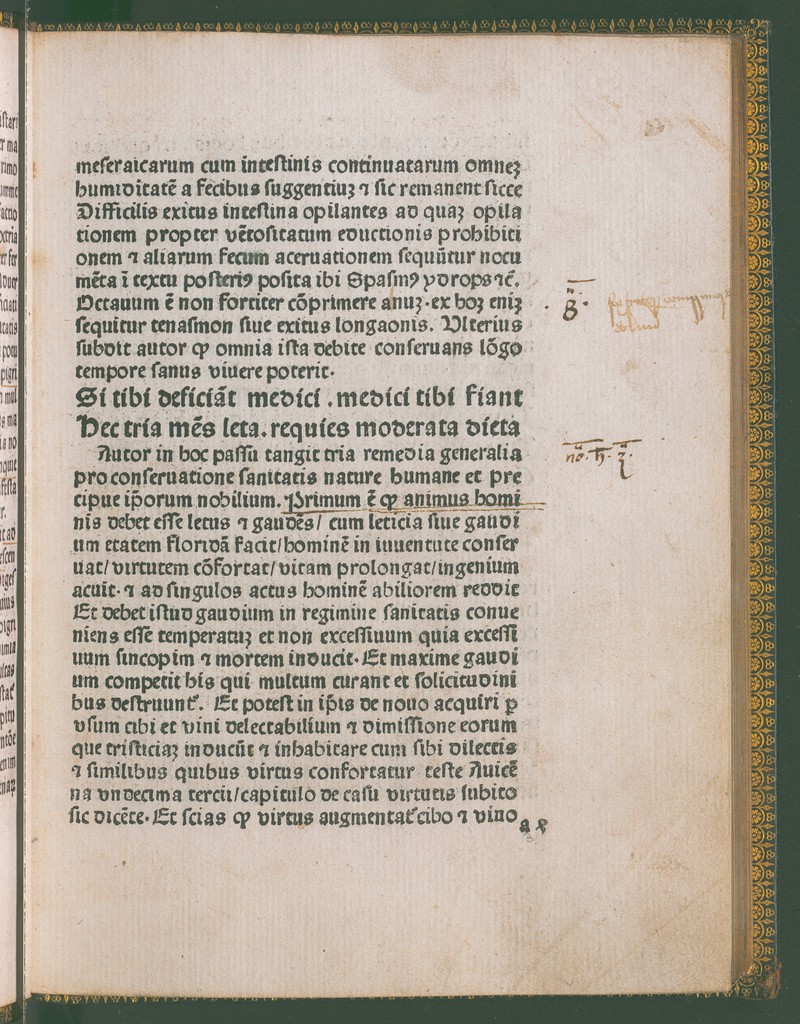 meſeraicarum cum inteſtinis continuatarum omneʒ
humiditatē a fecibus ſuggentiuʒ ⁊ ſic remanent ſicce
Difficilis exitus inteſtina opilantes ad quaʒ opila
tionem propter vētoſitatum eductionis prohibiti
onem ⁊ aliarum fecum aceruationem ſequūtur nocu
mēta ī textu poſteriꝰ poſita ibi Spaſmꝰ ydrops ⁊c̄.
Octauum ē non fortiter cōprimere anuʒ·ex hoʒ eniʒ
ſequitur tenaſmon ſiue exitus longaonis. Vlterius
ſubdit autor ꝙ omnia iſta debite conſeruans lōgo
tempore ſanus viuere poterit·
Si tibi deficiāt medici .medici tibi fiant
Hec tria mēs leta.requies moderata dieta
Autor in hoc paſſu tangit tria remedia generalia
pro conſeruatione ſanitatis nature humane et pre
cipue ip̄orum nobilium. Primum ē ꝙ animus homi
nis debet eſſe letus ⁊ gaudēs/ cum leticia ſiue gaudi
um etatem floridā facit/hominē in iuuentute conſer
uat/virtutem cōfortat/vitam prolongat/ingenium
acuit· ⁊ ad ſingulos actus hominē abiliorem reddit
Et debet iſtud gaudium in regimine ſanitatis conue
niens eſſe temperatuʒ et non exceſſiuum quia exceſſi
uum ſincopim ⁊ mortem inducit· Et maxime gaudi
um competit his qui multum curant et ſolicitudini
bus deſtruunt᷑. Et poteſt in ip̄is de nouo acquiri ꝑ
vſum cibi et vini delectabilium ⁊ dimiſſione eorum
que triſticiaʒ inducūt ⁊ inhabitare cum ſibi dilectis
⁊ ſimilibus quibus virtus confortatur teſte Auicē
na vndecima tercii/capitulo de caſu virtutis ſubito
ſic dicēte· Et ſcias ꝙ virtus augmentat᷑ cibo ⁊ vino